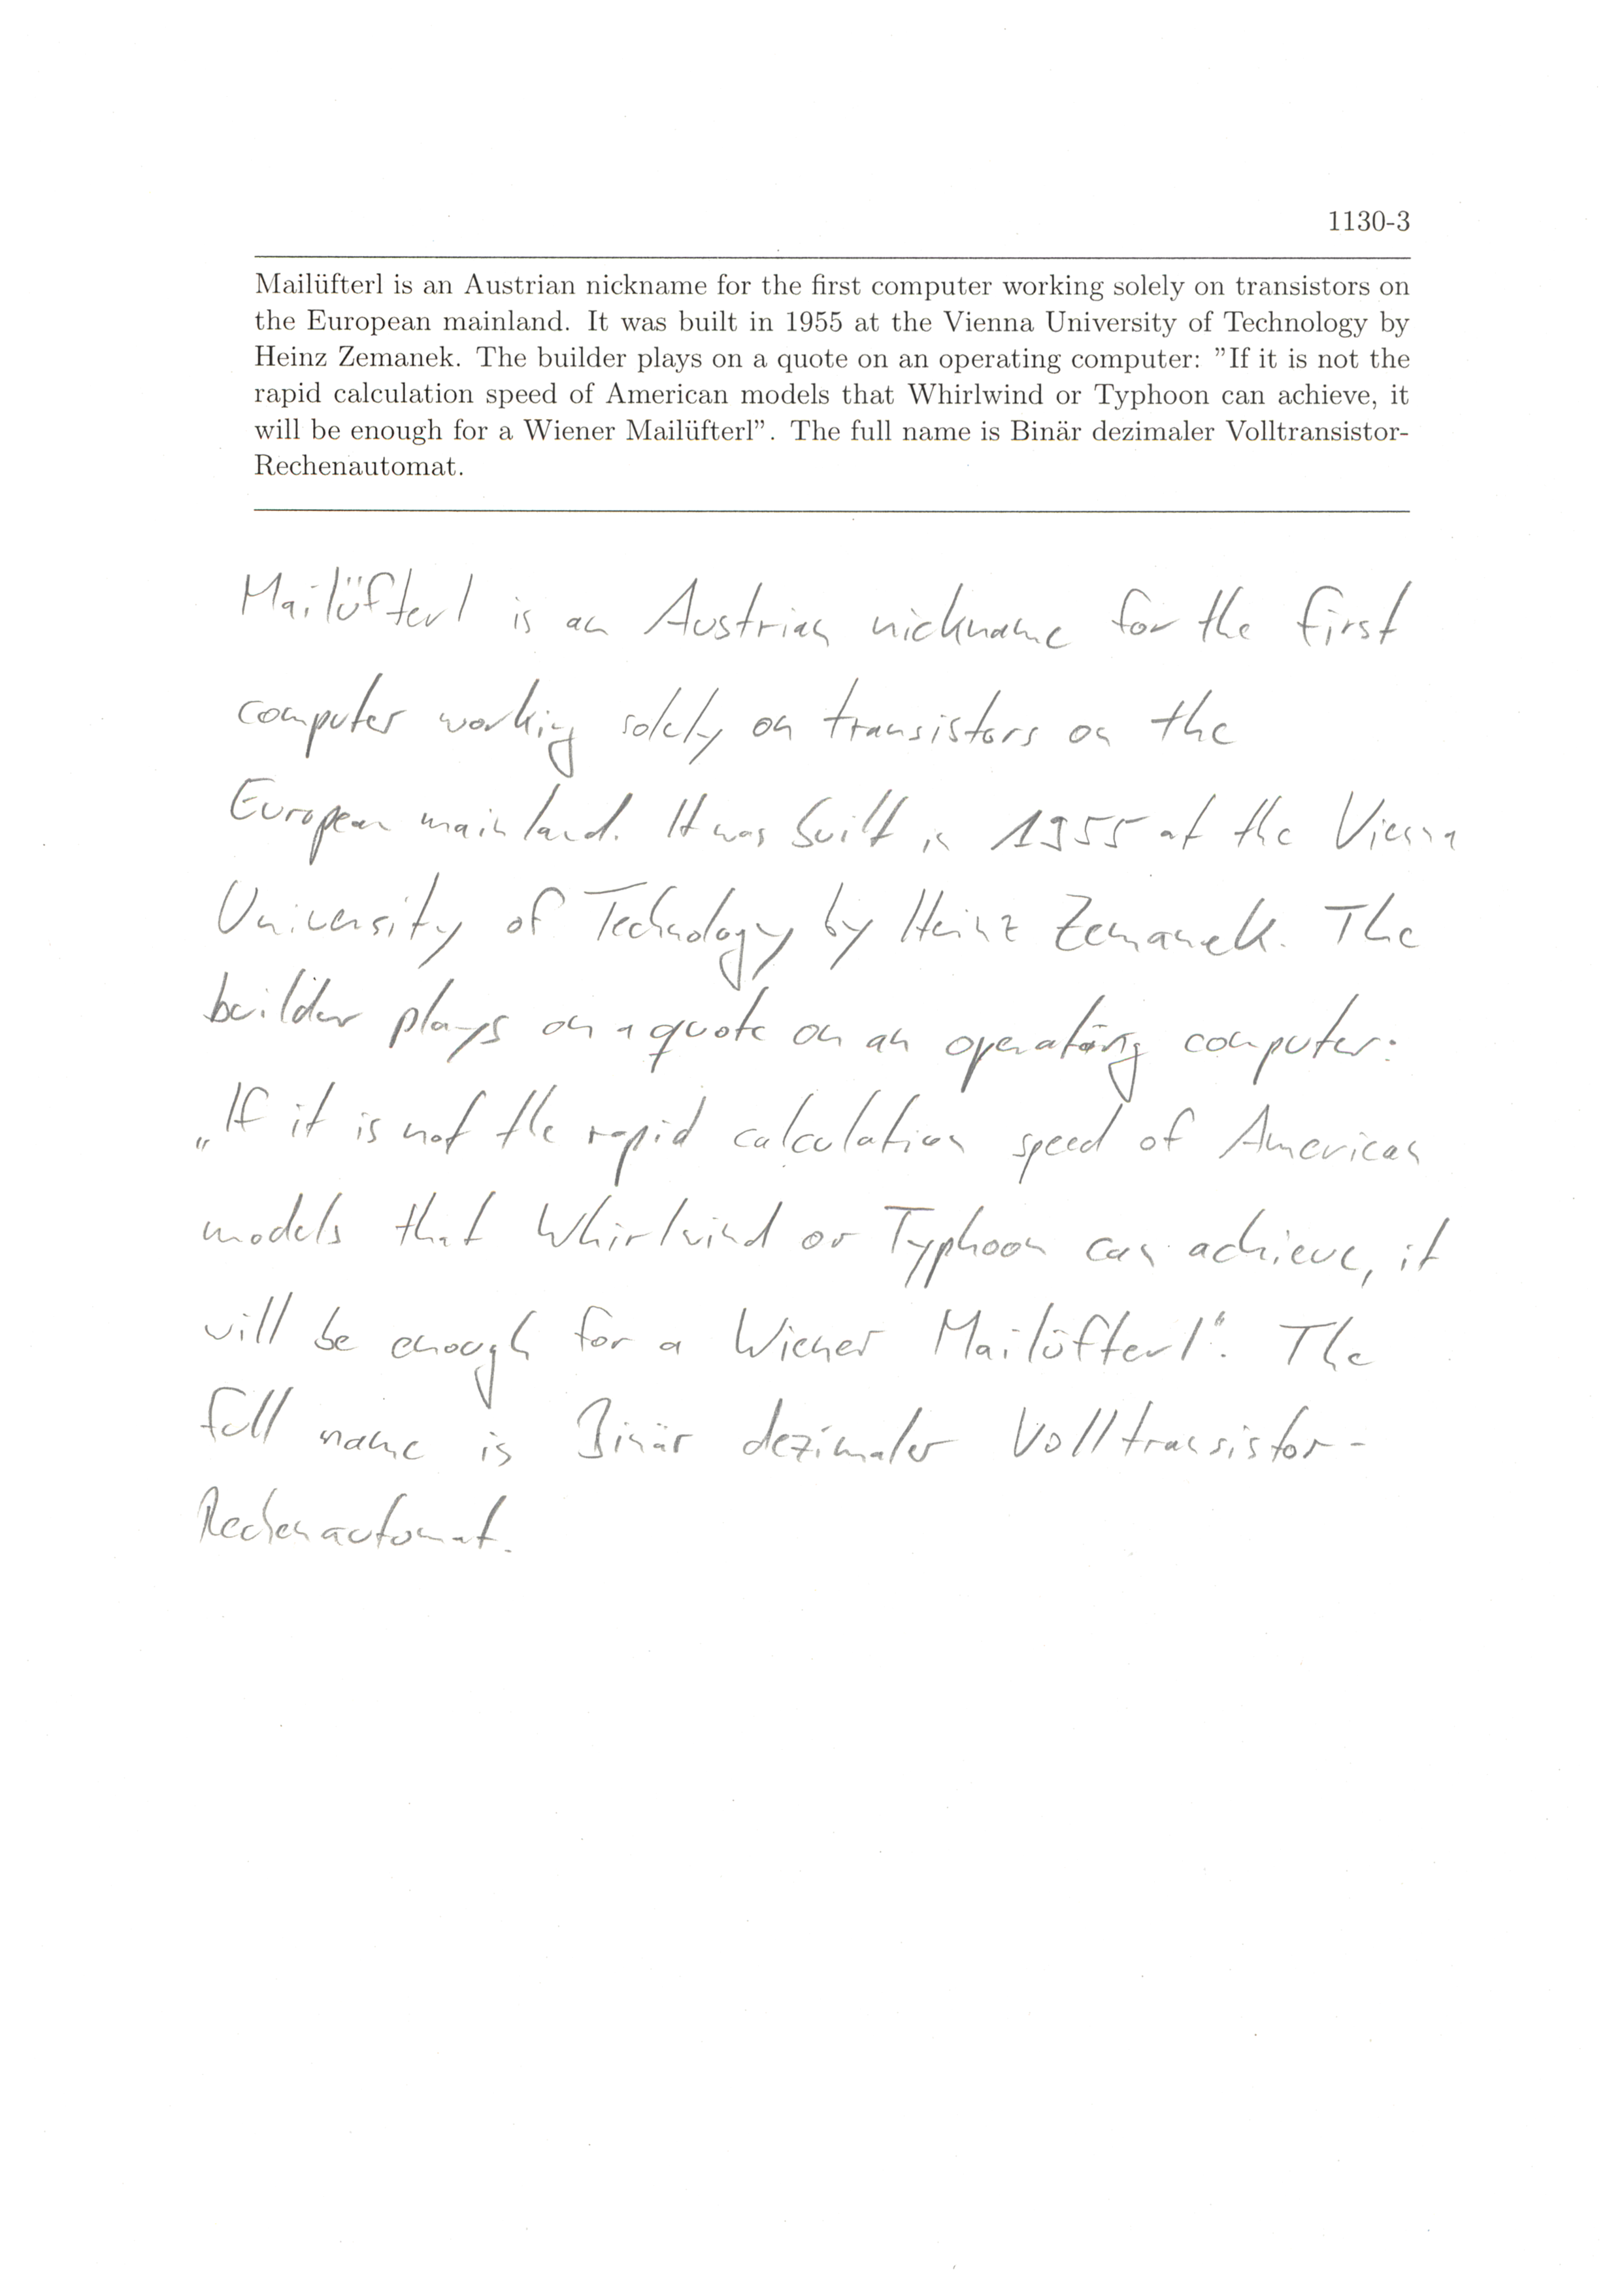 1130-3
Mailüfterl is an Austrian nickname for the first computer working solely on transistors on
the European mainland. It was built in 1955 at the Vienna University of Technology by
Heinz Zemanek. The builder plays on a quote on an operating computer: ”If it is not the
rapid calculation speed of American models that Whirlwind or Typhoon can achieve, it
will be enough for a Wiener Mailüfterl”. The full name is Binär dezimaler Volltransistor-
Rechenautomat.
Mailüfterl is an Austrian nickname for the first
computer working solely on transistors on the
European mainland. It was built in 1955 at the Vienna
University of Technology by Heinz Zemanek. The
builder plays on a quote on an operating computer:
„If it is not the rapid calculation speed of American
models that Whirlwind or Typhoon can achieve, it
will be enough for a Wiener Mailüfterl“. The
full name is Binär dezimaler Volltransistor-
Rechenautomat.